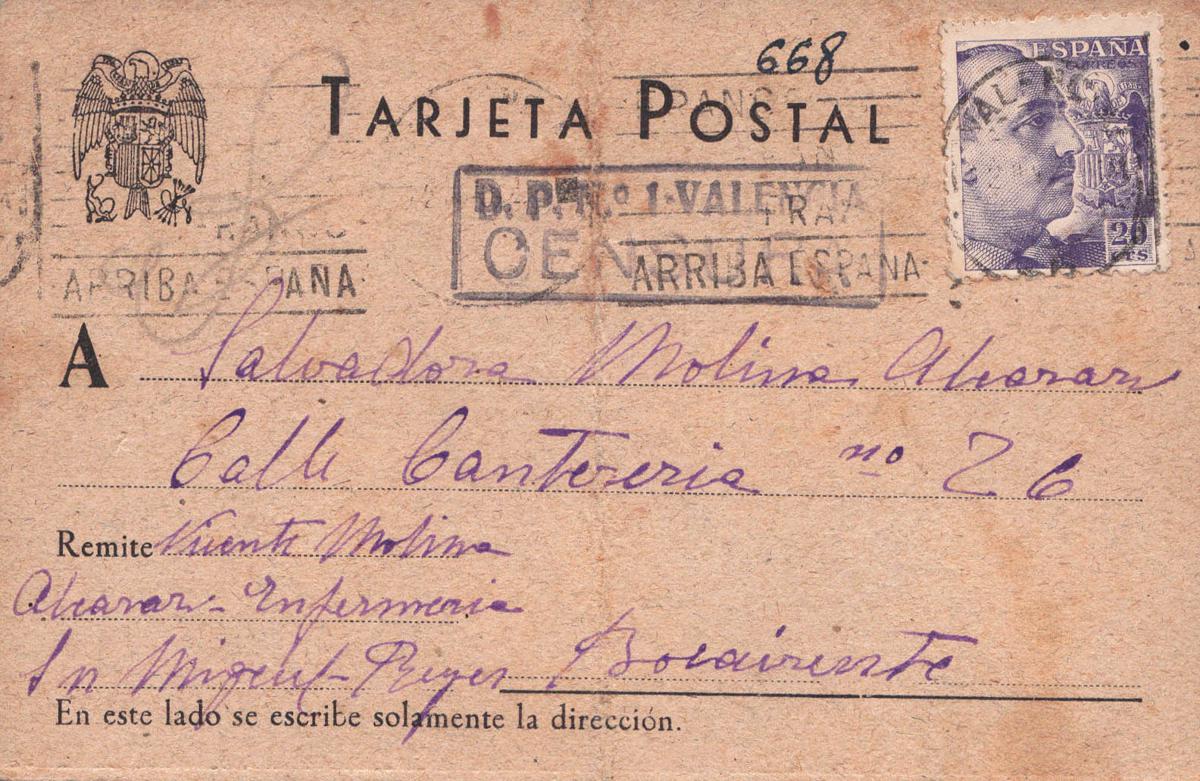 668
TARJETA POSTAL
ESPAÑA
CORREOS
VALENCIA
20
CTS
D. P. N.º 1-VALENCIA
FRANCO
ARRIBA ESPAÑA
ARRIBA ESPAÑA
A Salvadora Molina Alcaraz
Calle Cantereria nº 26
Remite Vicente Molina
Alcaraz - Enfermeria
Sn Miguel - Reyes Bocairente
En este lado se escribe solamente la dirección.